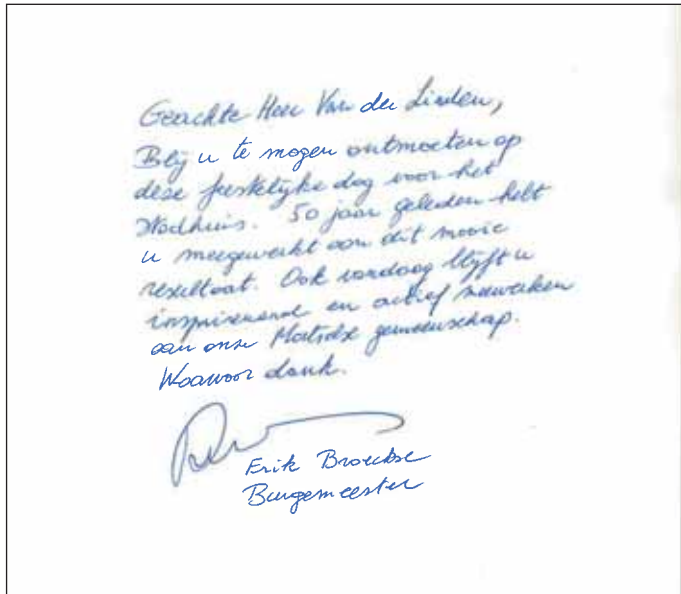 Geachte Heer Van der Linden,
Blij u te mogen ontmoeten op
deze feestelijke dag voor het
stadhuis. 50 jaar geleden hebt
u meegewerkt aan dit mooie
resultaat. Ook vandaag blijft u
inspirerend en actief meewerken
aan onze gemeenschap.
Waarvoor dank.
Erik
Burgemeester